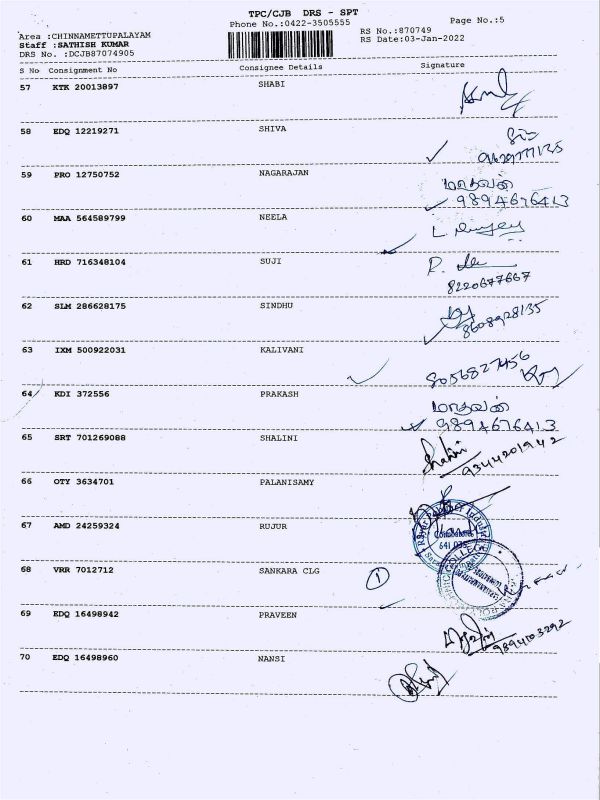 TPC/CJB DRS - SPT
Phone No.:0422-3505555
Page No.:5
Area :CHINNAMETTUPALAYAM
Staff :SATHISH KUMAR
DRS No. :DCJB87074905
RS No.:870749
RS Date:03-Jan-2022
S No Consignment No Consignee Details Signature
57 KTK 20013897 SHABI
58 EDQ 12219271 SHIVA
59 PRO 12750752 NAGARAJAN
மாதவன்
9894676413
60 MAA 564589799 NEELA
61 HRD 716348104 SUJI
8220677667
62 SLM 286628175 SINDHU
8608928135
63 IXM 500922031 KALIVANI
8056827456
64 KDI 372556 PRAKASH
மாதவன்
9894676413
65 SRT 701269088 SHALINI
Shalini
9344201942
66 OTY 3634701 PALANISAMY
67 AMD 24259324 RUJUR
Coimbatore
68 VRR 7012712 SANKARA CLG
1
69 EDQ 16498942 PRAVEEN
9894103292
70 EDQ 16498960 NANSI